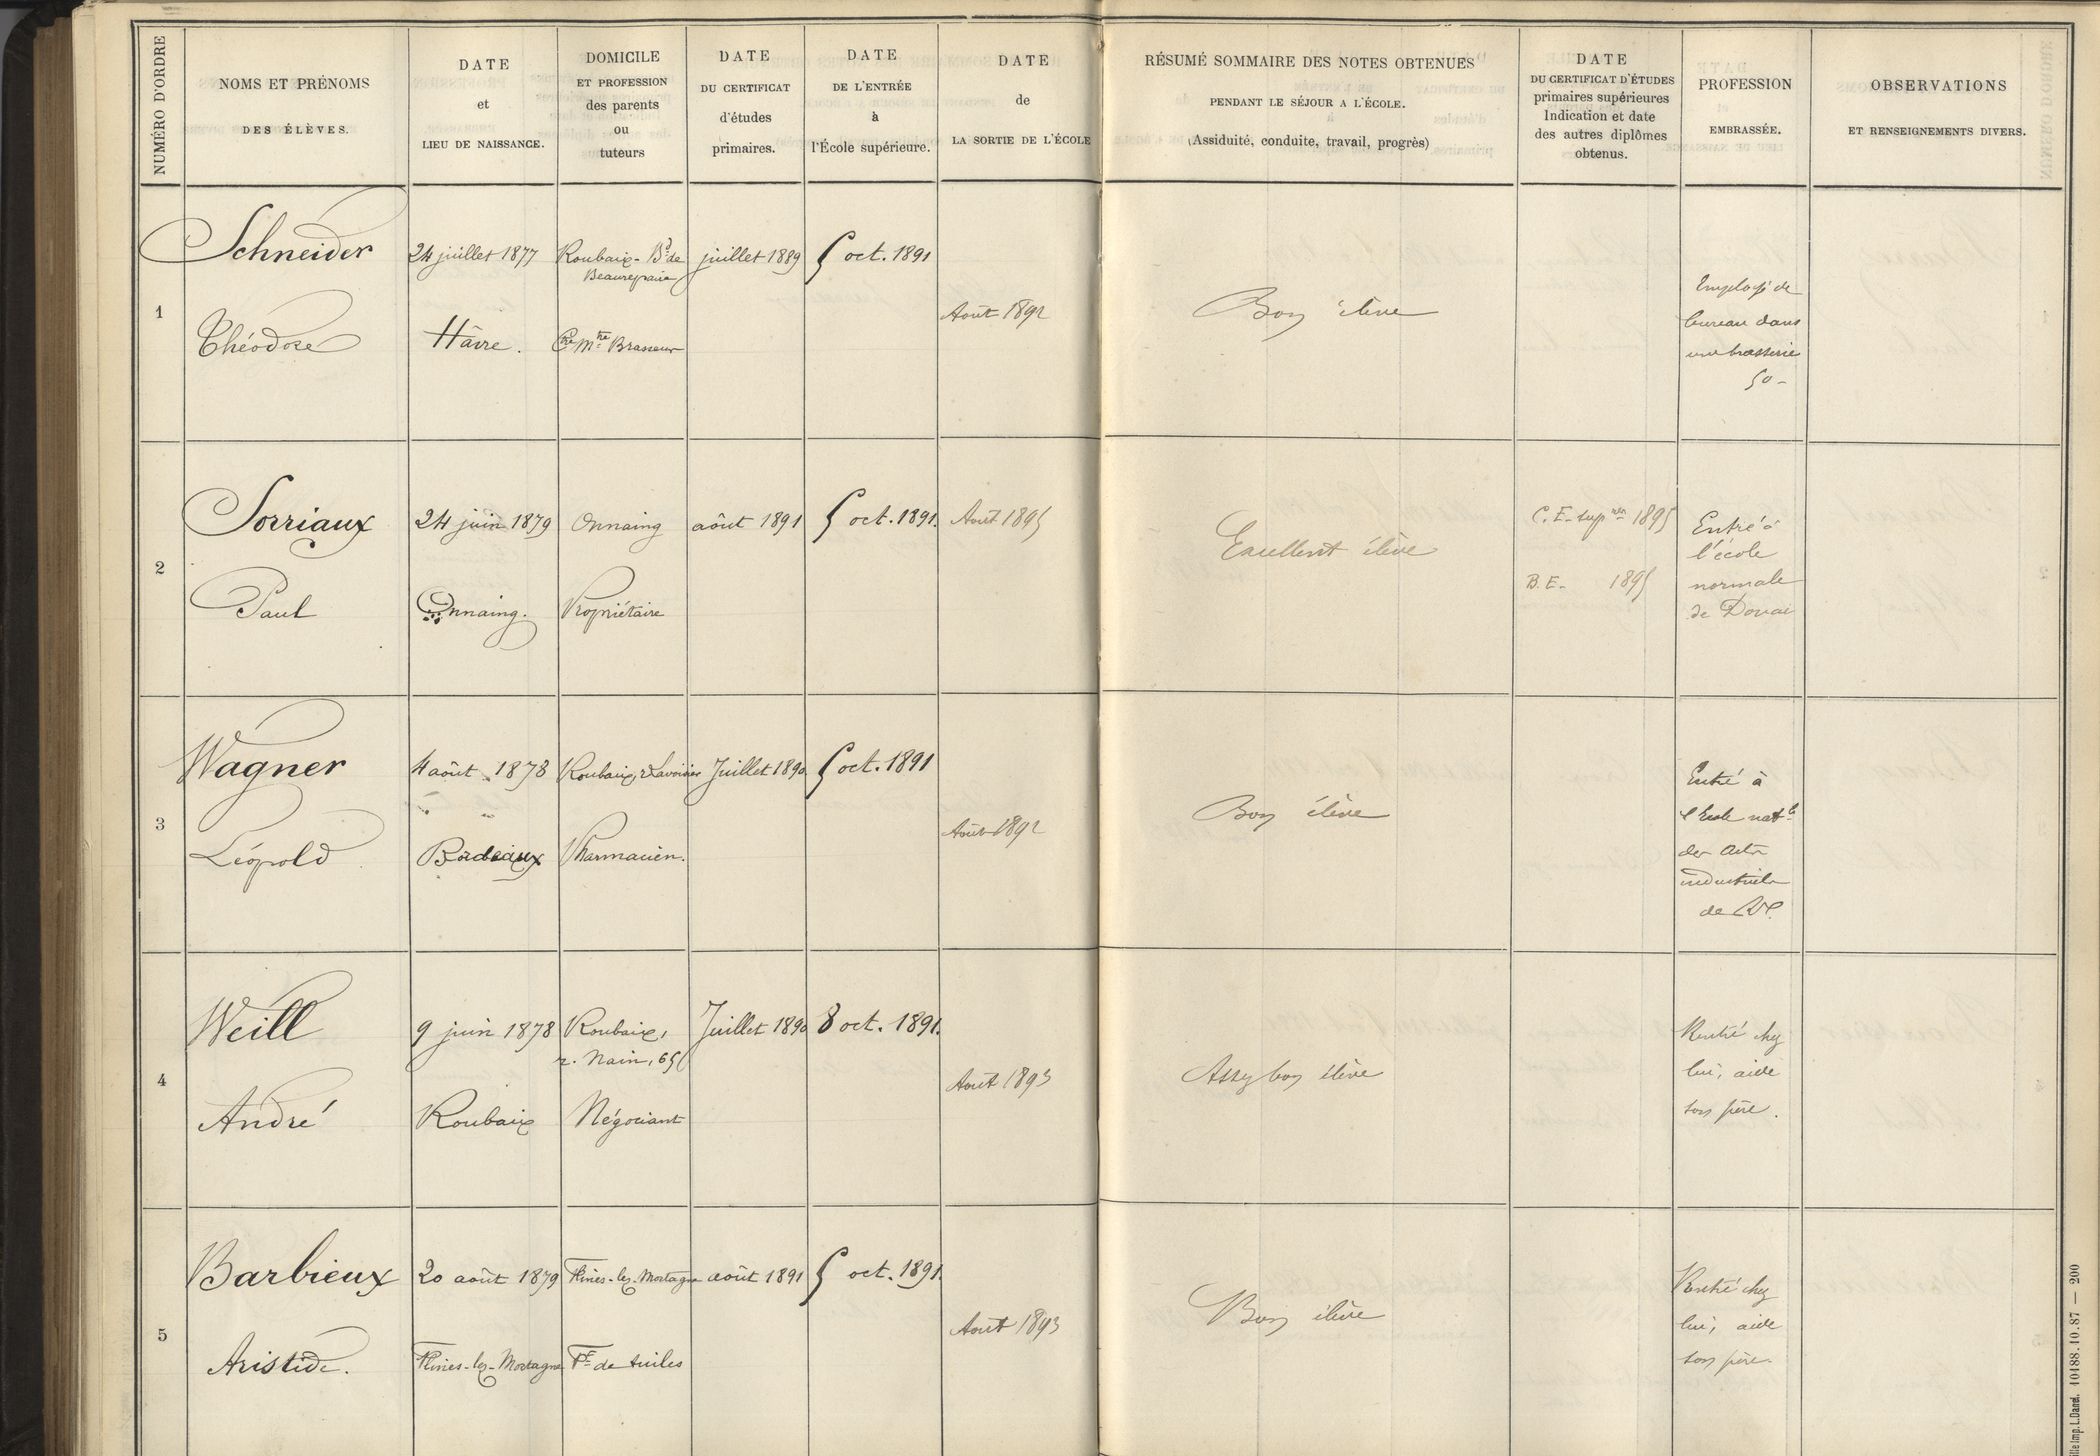 NUMÉRO D'ORDRE
NOMS ET PRÉNOMS
DES ÉLÈVES.
DATE
et
LIEU DE NAISSANCE.
DOMICILE
ET PROFESSION
des parents
ou
tuteurs
DATE
DU CERTIFICAT
d'études
primaires.
DATE
DE L'ENTRÉE
à
l'École supérieure.
DATE
de
LA SORTIE DE L'ÉCOLE
RÉSUMÉ SOMMAIRE DES NOTES OBTENUES
PENDANT LE SÉJOUR A L'ÉCOLE.
(Assiduité, conduite, travail, progrès)
DATE
DU CERTIFICAT D'ÉTUDES
primaires supérieures
Indication et date
des autres diplômes
obtenus.
PROFESSION
EMBRASSÉE.
OBSERVATIONS
ET RENSEIGNEMENTS DIVERS.
1
Schneider
Théodore
24 juillet 1877
Hâvre.
Roubaix - Bd de
Beaurepaire
Ctre Mtre Brasseur
juillet 1889
5 oct. 1891
Août 1892
Bon élève
Employé de
bureau dans
une brasserie
50 -
2
Sorriaux
Paul
24 juin 1879
Onnaing.
Onnaing
Propriétaire
août 1891
5 oct. 1891.
Août 1895
Excellent élève
C. E. supres 1895
B. E. 1895
Entré à
l'école
normale
de Douai
3
Wagner
Léopold
4 août 1878
Bordeaux
Roubaix, r. Lavoisier
Pharmacien.
Juillet 1890
5 oct. 1891
Août 1892
Bon élève
Entré à
l'Ecole natle
des Arts
industriels
de Rx.
4
Weill
André
9 juin 1878
Roubaix
Roubaix,
r. Nain, 65
Négociant
Juillet 1890
8 oct. 1891.
Août 1893
Assez bon élève
Rentré chez
lui, aide
son père.
5
Barbieux
Aristide.
20 août 1879
Flines-lez-Mortagne
Flines-lez-Mortagne
Ft de tuiles
août 1891
5 oct. 1891.
Août 1893
Bon élève
Rentré chez
lui, aide
son père.
Imp. L. Danel. 10488.10.87 — 200